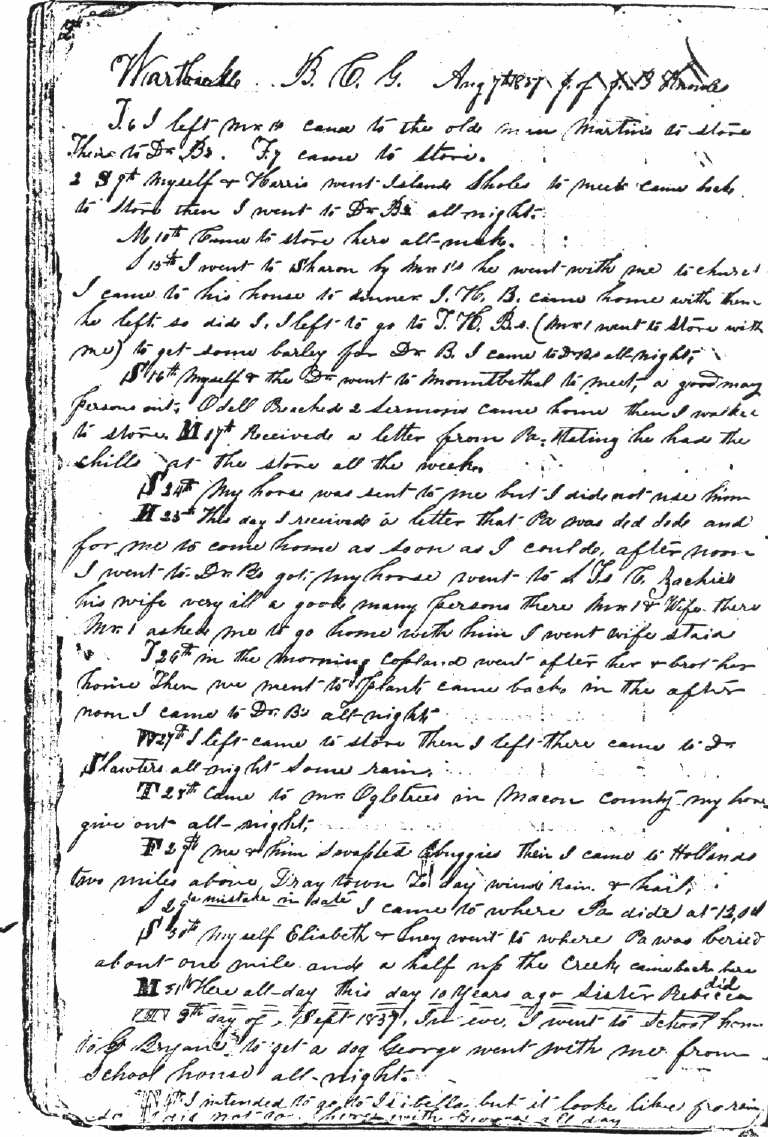 B. C. G. Aug 7th 1837 J. of J. B
T. 6 I left Mr. 1s came to the olde man Martins to store
Then to Dr. Bs. F. 7 came to store.
2 S 9th Myself & Harris went Islands Sholes to meet came back
to store then I went to Dr. Bs all-night.
M 10th Came to store here all-week.
S 15th I went to Sharon by Mr. 1's he went with me to church
I came to his house to dinner J. H. B. came home with them
he left so did I. I left to go to J. H. Bs. (Mr. 1 went to store with
me) to get some barley for Dr. B. I came to Dr Bs all-night.
S 16th Myself & the Dr went to Mountbethal to meet, a good many
persons out. Odell Preached 2 Sermons came home then I walked
to store. M 17th Received a letter from Pa. Stating he had the
chills at the store all the week.
S 24th My horse was sent to me but I dide not use him
M 25th This day I received a letter that Pa was ded dede and
for me to come home as soon as I coulde, after noon
I went to Dr Bs got my horse went to T. C. Zachries
his wife very ill a good many persons there Mr. 1 & Wife there
Mr. 1 asked me to go home with him I went wife staid
T 26th in the morning Copland went after her & brot her
home Then we went to Plant, came back in the after
noon I came to Dr. Bs all-night
W 27th I left came to store then I left there came to Dr
Slawters all night Some rain.
T 28th Came to Mr. Ogletrees in Macon County my horse
give out all-night.
F 29th me & him swapted buggies then I came to Hollands
two miles above Dray town To day wind Rain & hail.
S 29 a mistake in date I came to where Pa dide at 12,Oct
S 30th Myself Eliabeth & Lucy went to where Pa was beried
about one mile and a half up the Creek came back here
M 31th Here all-day this day 10 Years ago Sister Rebicca did
9th day of, Sept 1837. In eve. I went to School hom
to G Bryans to get a dog George went with me from
School house all-night.
I intended to go to Isibella but it looke like for rain
did not go here with George all day